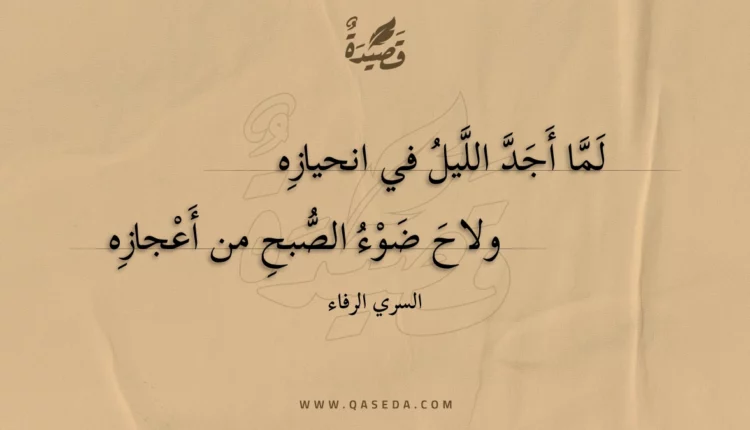 قَصِيْدَةٌ
لَمَّا أَجَدَّ اللَّيلُ في انحيازِهِ
ولاحَ ضَوْءُ الصُّبحِ من أَعْجازِهِ
السري الرفاء
WWW.QASEDA.COM